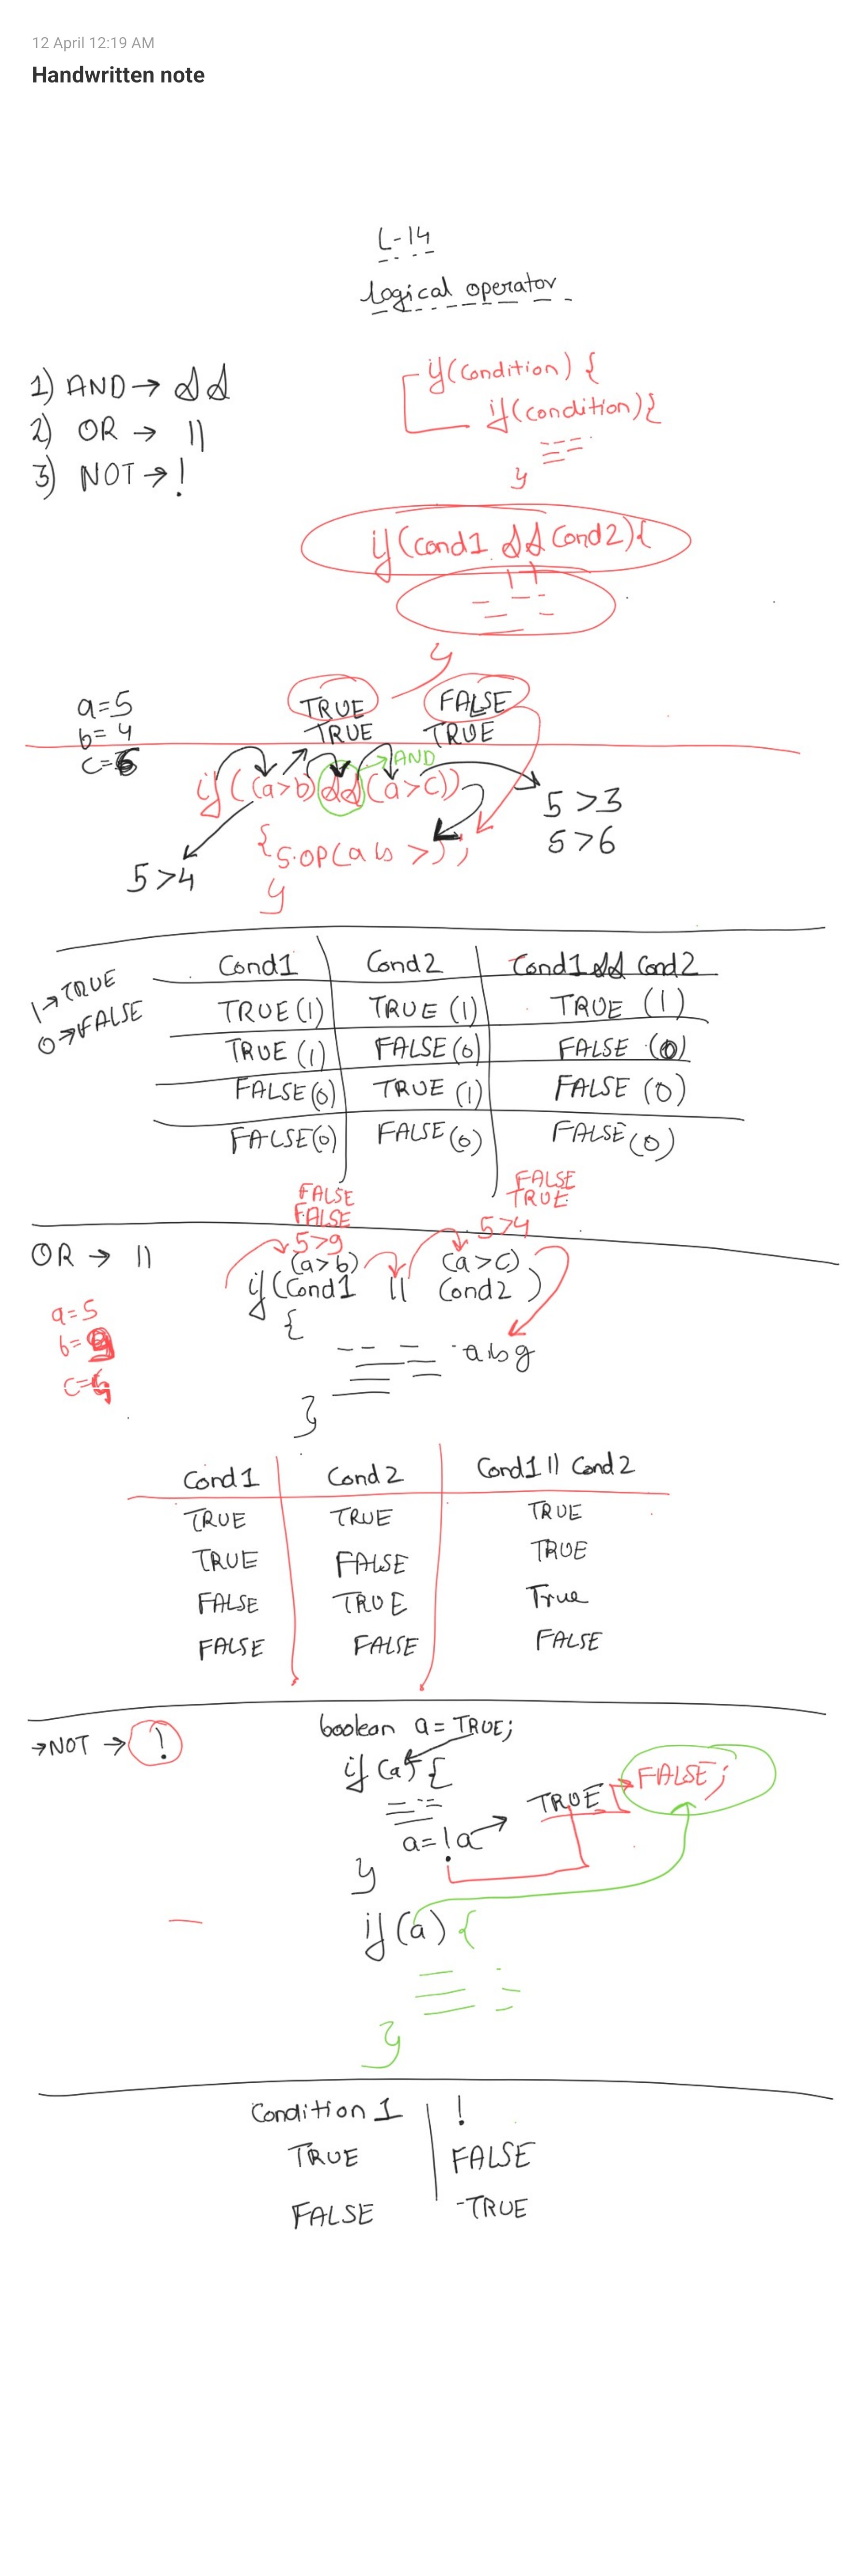 12 April 12:19 AM
Handwritten note
L-14
Logical operator
1) AND → &&
2) OR → ||
3) NOT → !
if(condition) {
if(condition){
}
if(Cond1 && Cond2){
}
a=5
b=4
c=6
TRUE FALSE
TRUE TRUE
→AND
if((a>b)&&(a>c))
5>3
5>6
{S.OP(a is >);
5>4
}
1→TRUE
0→FALSE
Cond1 Cond2 Cond1 && Cond2
TRUE(1) TRUE(1) TRUE (1)
TRUE (1) FALSE(0) FALSE (0)
FALSE(0) TRUE (1) FALSE (0)
FALSE(0) FALSE(0) FALSE(0)
FALSE FALSE
FALSE TRUE
5>9 5>4
OR → ||
(a>b) (a>c)
if(Cond1 || Cond2)
a=5
b=9
c=4
{
a is g
}
Cond1 Cond2 Cond1 || Cond2
TRUE TRUE TRUE
TRUE FALSE TRUE
FALSE TRUE True
FALSE FALSE FALSE
→NOT → !
boolean a = TRUE;
if(a) {
TRUE FALSE;
a=!a
}
if(a) {
}
Condition 1 !
TRUE FALSE
FALSE TRUE